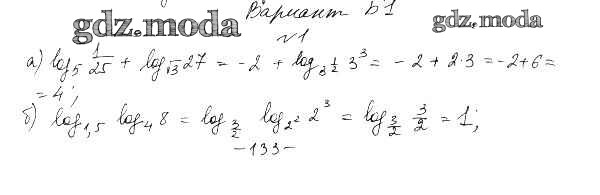 gdz.moda Вариант Б1 gdz.moda
№1
а) log₅ 1/25 + log_√3 27 = -2 + log_3^(1/2) 3³ = -2 + 2·3 = -2+6 =
= 4;
б) log₁,₅ log₄ 8 = log_3/2 log_2² 2³ = log_3/2 3/2 = 1;
-133-